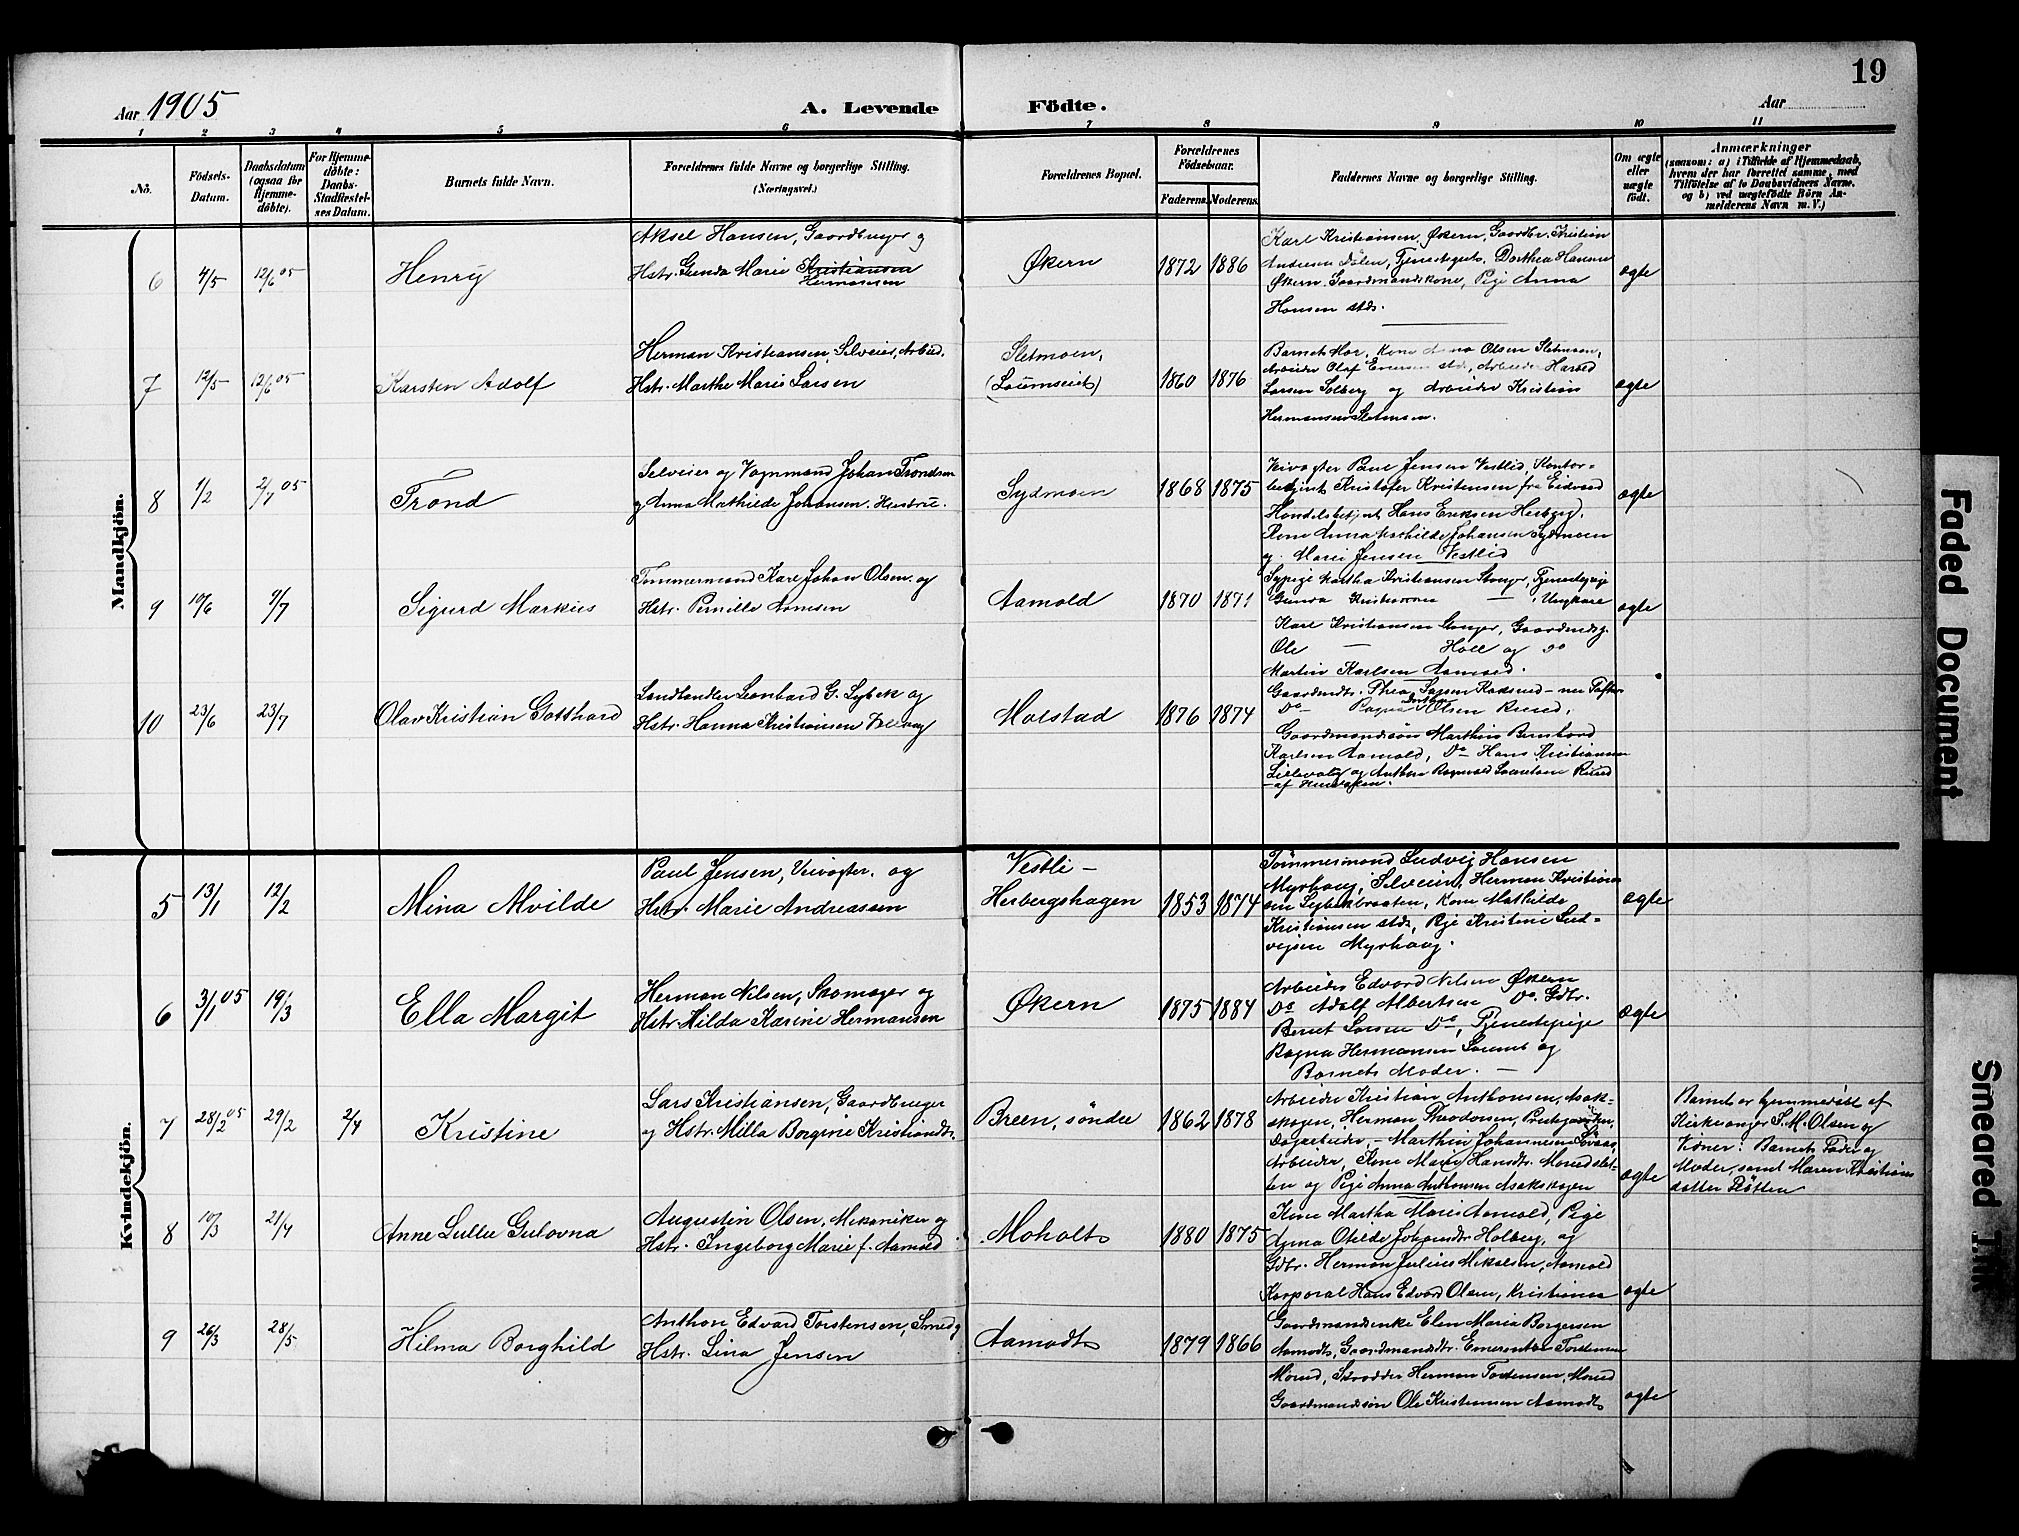 19
Aar 1905
A. Levende Födte.
Aar
1 2 3 4 5 6 7 8 9 10 11
No.
Födsels-Datum.
Daabsdatum (ogsaa for Hjemme-döbte).
For Hjemme-döbte: Daabs-Stadfæstel-ses Datum.
Barnets fulde Navn.
Forældrenes fulde Navne og borgerlige Stilling. (Næringsvei.)
Forældrenes Bopæl.
Forældrenes Födselsaar.
Faderens. Moderens.
Faddernes Navne og borgerlige Stilling.
Om ægte eller uægte födt.
Anmærkninger
(saasom: a) i Tilfælde af Hjemmedaab, hvem der har forrettet samme, med Tilföielse af to Daabsvidners Navne. og b) ved uægtefödte Börn An-melderens Navn m. V.)
Mandkjön.
6 4/5 12/6 05 Henry
Aksel Hansen, Gaardbruger og
Hstr. Gunda Marie Kristiansen
Hermansen
Økern 1872 1886
Karl Kristiansen Økern, Gaardbr. Kristian
Andersen Dølen, Tjenestegut, Dorthea Hansen
Økern Gaardmandskone, Pige Anna
Hansen stds.
ægte
7 12/5 12/6 05 Karsten Adolf
Herman Kristiansen, Selveier, Arbeid.
Hstr. Marthe Marie Larsen
Sletmoen,
1860 1876
Barnets Mor, Kone Anna Olsen Sletmoen,
Arbeider Olaf Enersen stds, Arbeider Harald
Larsen Solberg og Arbeider Kristian
Hermansen Sletmoen.
ægte
8 1/2 2/7 05 Trond
Selveier og Vognmand Johan Trondsen
og Anna Mathilde Johansen, Hustru.
Sydmoen 1868 1875
Veivogter Paul Jensen Vestlid, Kontor-
betjent Kristofer Kristensen fra Eidsvold
Handelsbetjent Hans Eriksen Herberg,
Kone Anna Mathilde Johansen Sydmoen
og Marie Jensen Vestlid
ægte
9 10/6 9/7 Sigurd Markus
Tømmermand Karl Johan Olsen og
Hstr. Pernille Arnesen
Aamold 1870 1871
Sypige Martha Kristiansen Stenger, Tjenestepige
Gunda Kristiansen — , Ungkarl
Karl Kristiansen Stenger, Gaardmdsg.
Ole — Holl og Do
Martin Karlsen Aamold.
ægte
10 23/6 23/7 Olav Kristian Gotthard
Landhandler Leonhard G. Sybek og
Hstr. Hanna Kristiansen
Molstad 1876 1874
Do Ragna Olsen Ruud,
Gaardmandssøn Marthin Bernhard
Karlsen Aamold, Do Hans Kristiansen
Kvindekjön.
5 13/1 12/2 Mina Alvilde
Paul Jensen, Veivogter. og
Hstr. Marie Andreassen
Vestli -
Herbergshagen 1853 1874
Tømmermand Ludvig Hansen
Myrhaug, Selveier Herman Kristian-
sen Sybekbraaten, Kone Mathilde
Kristiansen stds, Pige Kristine Lud-
vigsen Myrhaug.
ægte
6 3/1 05 19/3 Ella Margit
Herman Nilsen, Skomager og
Hstr. Hilda Karine Hermansen
Økern 1875 1884
Arbeider Edvard Nilsen Økern
Do Adolf Albertsen Do. Gdbr.
Bernt Larsen Do, Tjenestepige
Ragna Hermansen Laumb og
Barnets Moder. —
ægte
7 28/2 05 29/2 2/4 Kristine
Lars Kristiansen, Gaardbruger
og Hstr. Milla Borgine Kristiandtr.
Breen, söndre 1862 1878
Arbeider Kristian Anthonsen, Aasak-
skogen, Herman Theodorsen,
Dagarbeider, - Marthin Johannesen
Arbeider, Kone Marie Hansdtr. Morudslet-
ten og Pige Anna Anthonsen Asakskogen
ægte
Barnet er hjemmedöbt af
Kirkesanger S. M. Olsen og
Vidner: Barnets Fader og
Moder, samt Maren Kristians
datter
8 10/3 21/4 Anne Lullu Gulovna
Augustin Olsen, Mekaniker og
Hstr. Ingeborg Marie f. Aamold
Moholt 1880 1875
Kone Martha Marie Aamold, Pige
Agna Otilde Johansdtr. Holberg, og
Gdbr. Herman Julius Mikalsen, Aamold
Korporal Hans Edvard Olsen, Kristiania
ægte
9 26/3 28/5 Hilma Borghild
Anthon Edvard Torstensen, Smed og
Hstr. Lina Jensen
Aamodt 1879 1866
Gaardmandsenke Elen Maria Borgersen
Aamodt, Gaardmandsdtr. Emerentze Torstensen
Morud, Skrædder Herman Torstensen, Morud
Gaardmandssön Ole Kristiansen Aamodt
ægte
Faded Document
Smeared Ink